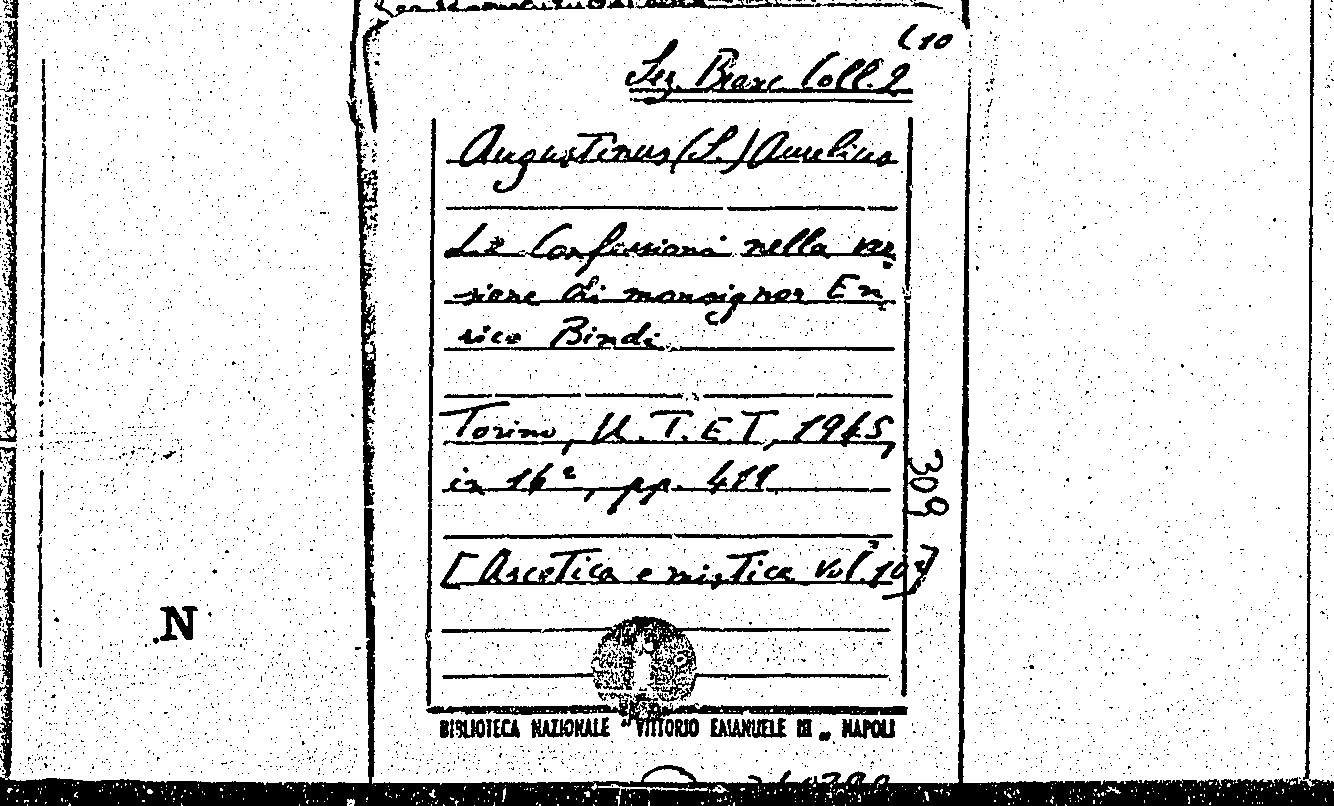 (10
Sez. Branc. Coll. 2
Augustinus (S.) Aurelius
Le Confessioni nella ver
sione di monsignor En
rico Bindi
Torino, U.T.E.T, 1945,
in 16º, pp. 411
309
[Ascetica e mistica vol. 10º]
N
BIBLIOTECA NAZIONALE "VITTORIO EMANUELE III„ NAPOLI